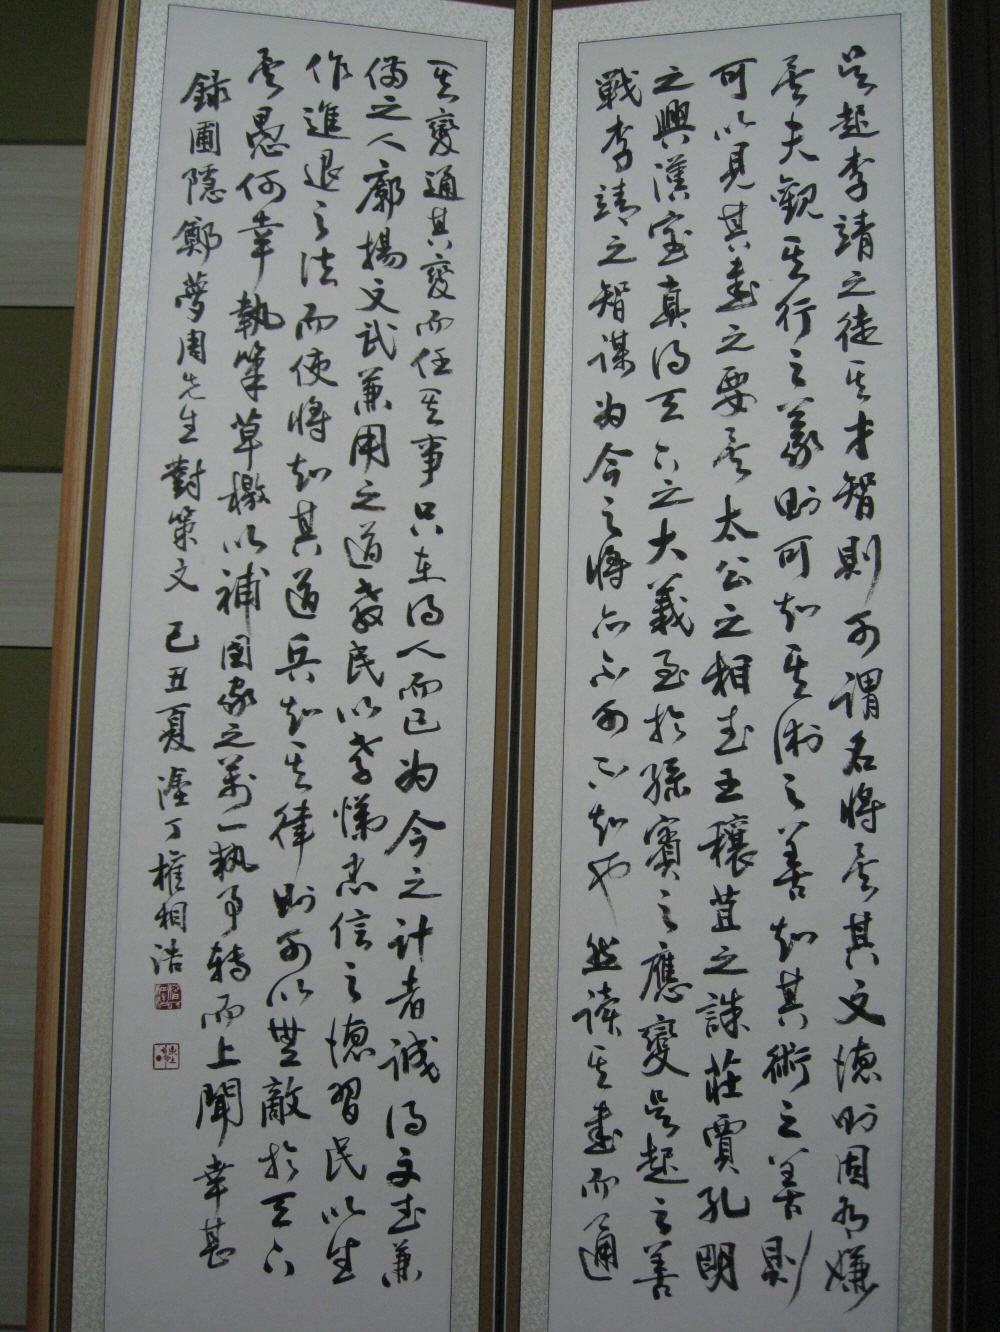 吳起李靖之徒其才智則可謂名將矣其文德則固有嫌
矣夫觀其行之義則可知其術之善知其術之善則
可以見其書之要矣太公之相武王穰苴之誅莊賈孔明
之興漢室真得天下之大義至於孫賓之應變吳起之善
戰李靖之智謀為今之將亦不可不知也然讀其書而通
其變通其變而任其事只在得人而已為今之計者誠得文武兼
備之人廓揚文武兼用之道教民以孝悌忠信之德習民以坐
作進退之法而使將知其道兵知其律則可以無敵於天下
矣愚何幸執筆草檄以補國家之萬一執事轉而上聞幸甚
錄圃隱鄭夢周先生對策文 己丑夏 丁權相浩